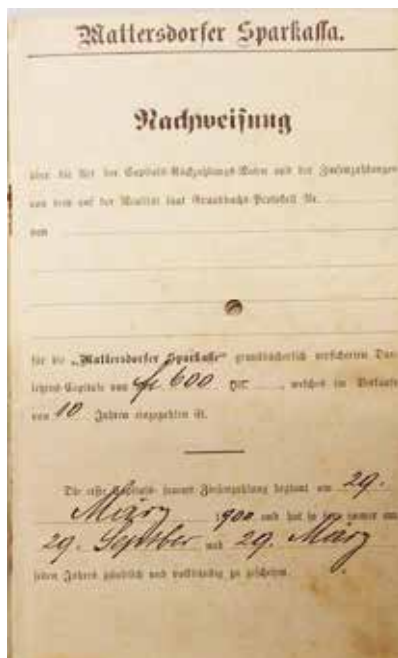 Mattersdorfer Sparkassa.
Nachweisung
über die Art der Capitals-Rückzahlungs-Raten und der Zinsenzahlungen
von dem auf der Realität laut Grundbuchs-Protokoll Nr.
von
für die „Mattersdorfer Sparkasse“ grundbücherlich versicherten Dar-
lehens-Capitale von fl 600 , welches im Verlaufe
von 10 Jahren einzuzahlen ist.
Die erste Capitals- sammt Zinsenzahlung beginnt am 29.
März 1900 und hat so fort immer am
29. Septber und 29. März
jeden Jahres pünktlich und vollständig zu geschehen.